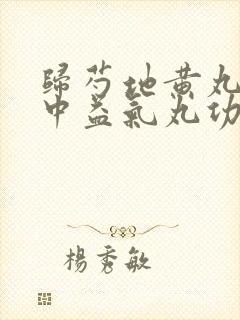 歸芍地黄丸
中益氣丸功
楊秀敏